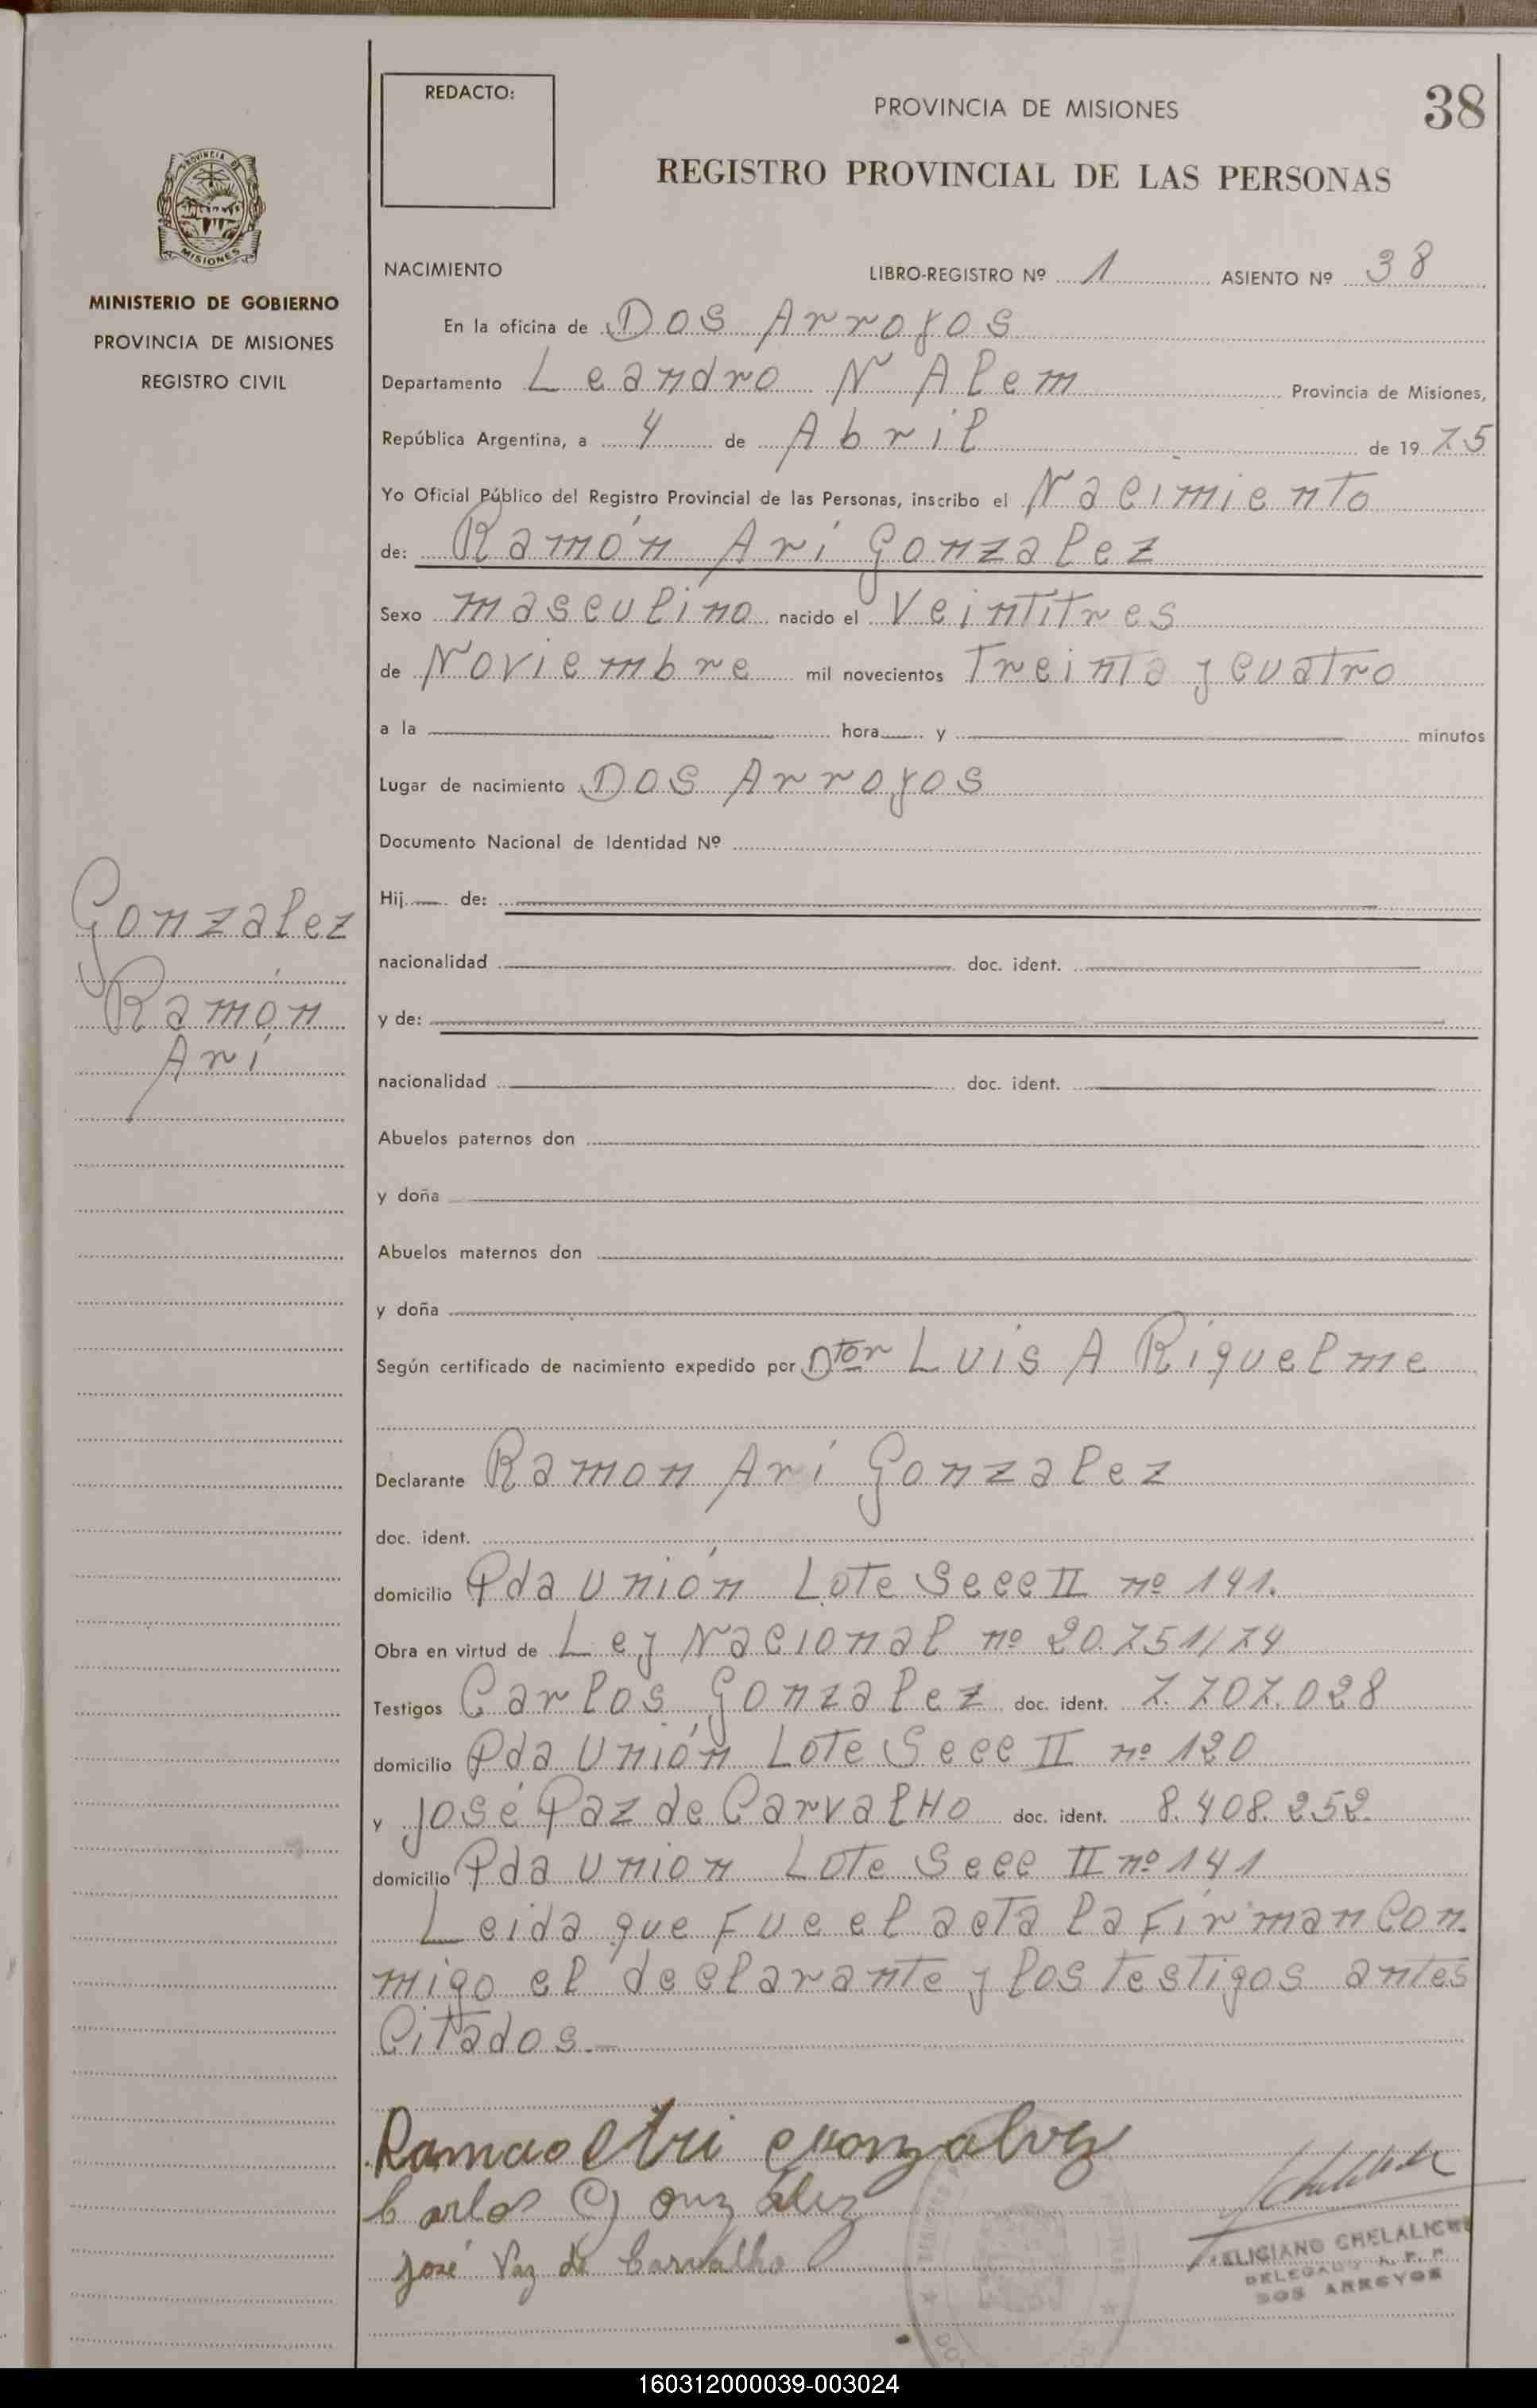 REDACTO:
PROVINCIA DE MISIONES
38
REGISTRO PROVINCIAL DE LAS PERSONAS
PROVINCIA DE
MISIONES
MINISTERIO DE GOBIERNO
PROVINCIA DE MISIONES
REGISTRO CIVIL
NACIMIENTO LIBRO-REGISTRO Nº 1 ASIENTO Nº 38
En la oficina de Dos Arroyos
Departamento Leandro N Alem Provincia de Misiones,
República Argentina, a 4 de Abril de 1975
Yo Oficial Público del Registro Provincial de las Personas, inscribo el Nacimiento
de: Ramón Arí Gonzalez
Sexo masculino nacido el Veintitres
de Noviembre mil novecientos Treinta y cuatro
a la hora y minutos
Lugar de nacimiento Dos Arroyos
Documento Nacional de Identidad Nº
Hij de:
nacionalidad doc. ident.
y de:
nacionalidad doc. ident.
Abuelos paternos don
y doña
Abuelos maternos don
y doña
Gonzalez
Ramón
Arí
Según certificado de nacimiento expedido por Dtor Luis A Riquelme
Declarante Ramon Arí Gonzalez
doc. ident.
domicilio Pda Unión Lote Secc II nº 141.
Obra en virtud de Ley Nacional nº 20.751/74
Testigos Carlos Gonzalez doc. ident. 7.707.028
domicilio Pda Unión Lote Secc II nº 120
y José Paz de Carvalho doc. ident. 8.408.252
domicilio Pda Union Lote Secc II nº 141
Leida que Fue el acta la Firman Con-
migo el declarante y los testigos antes
Citados.-
Ramao Ari Gonzalvez
Carlos Gonzalez
José Vaz de Carvalho
FELICIANO CHELALICHE
DELEGADO R. P. P.
DOS ARROYOS
160312000039-003024